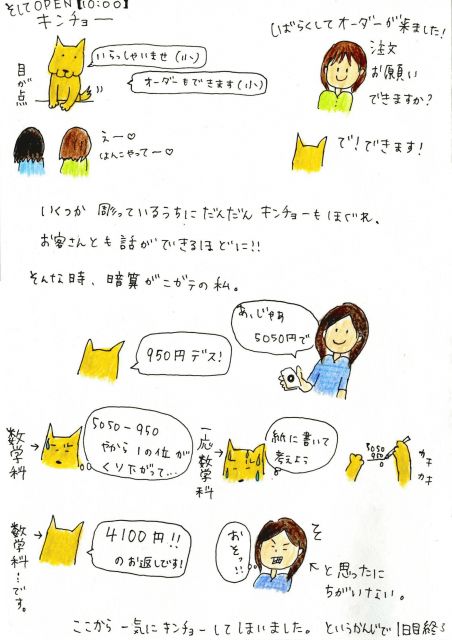 そしてOPEN【10:00】
キンチョー
いらっしゃいませ(小)
目が点
オーダーもできます(小)
えー♡
はんこやってー♡
しばらくしてオーダーが来ました!
注文
お願い
できますか?
で!できます!
いくつか彫っているうちにだんだんキンチョーもほぐれ、
お客さんとも話ができるほどに!!
そんな時、暗算がニガテの私。
950円デス!
あ、じゃあ
5050円で
数学科→
5050-950
やから1の位が
くり下がって…
一応数学科→
紙に書いて
考えよう
5050
950
0
カキ
カキ
数学科…です。→
4100円!!
のお返しです!
おそっ!!
そ
と思ったに
ちがいない。
ここから一気にキンチョーしてしまいました。というかんじで1日目終了